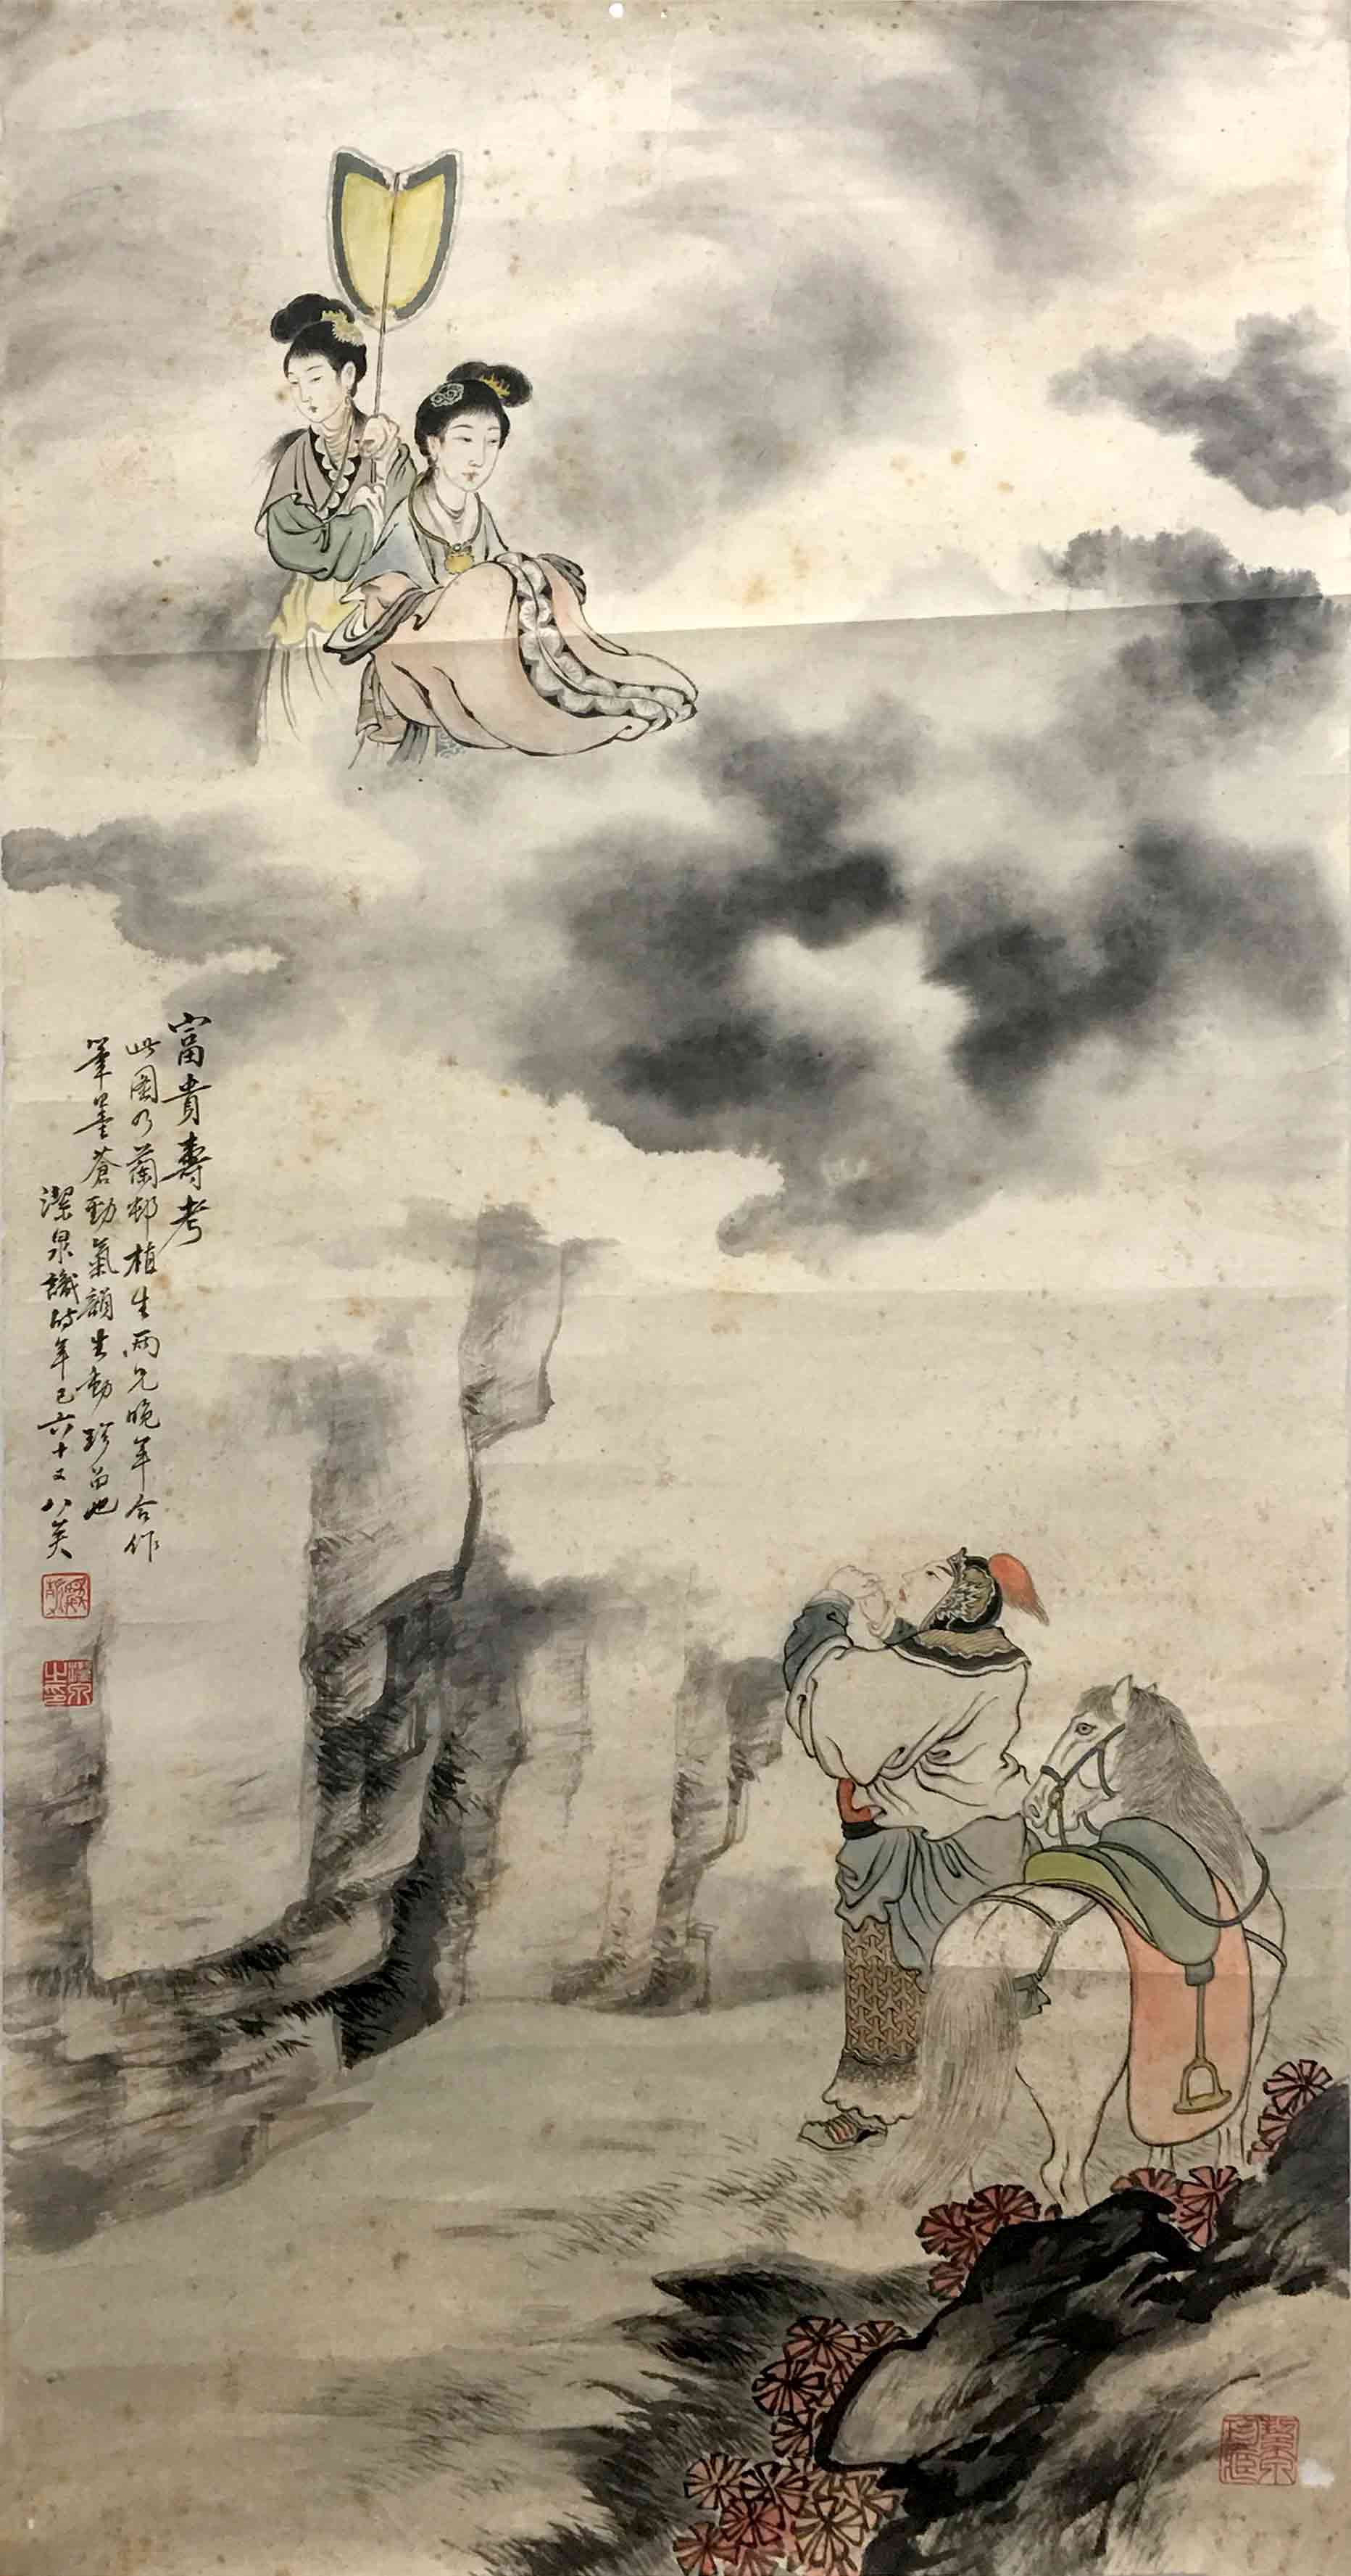 富貴壽考
此圖乃蘭邨植生兩兄晚年合作
筆墨蒼勁氣韻生動珍品也
潔泉識時年已六十又八矣